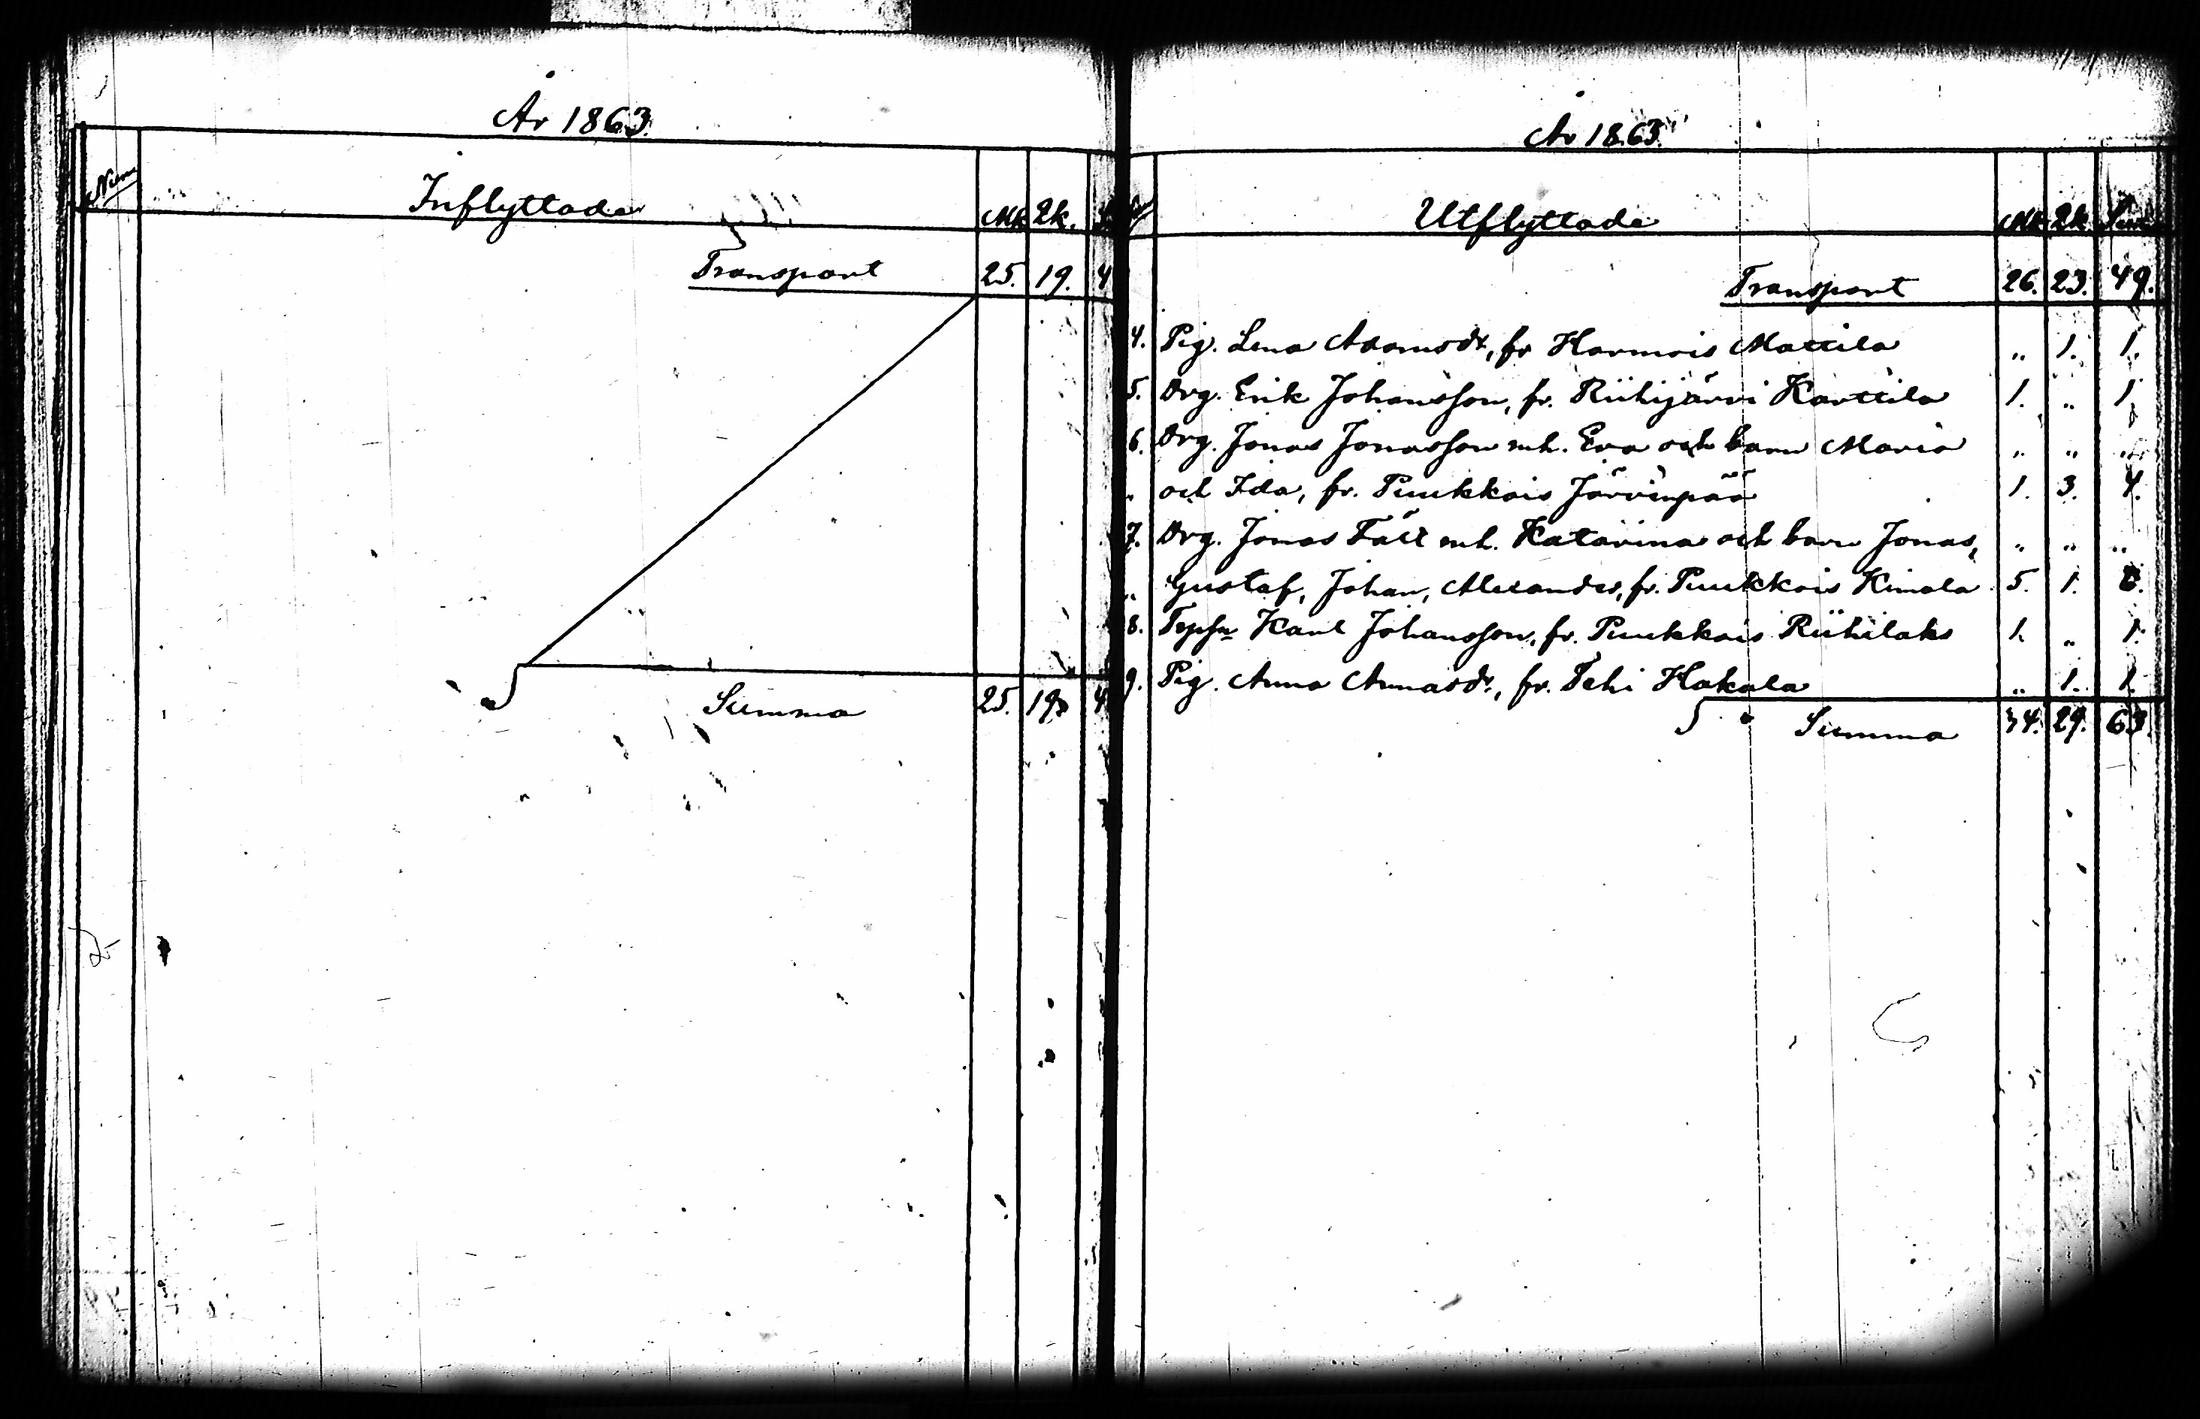 År 1863.
Num
Inflyttade
Mk. Qk.
Transport 25. 19. 4
Summa 25. 19. 4
År 1863.
Utflyttade
Mk. Qk. Sum
Transport 26. 23. 49.
4. Pig. Lena Adamsdr, fr Harmois Mattila „ 1. 1.
5. Drg. Erik Johansson, fr. Riihijärvi Karttila 1. „ 1
6. Drg. Jonas Jonasson mh. Eva och barn Maria „ „ „
„ och Ida, fr. Puukkois Järvenpää 1. 3. 4.
7. Drg. Jonas Fält mh. Katarina och barn Jonas, „ „ „
„ Gustaf, Johan, Alexander, fr. Puukkois Kimola 5. 1. 6.
8. Karl Johansson, fr. Puukkois Riihilaks 1. „ 1.
9. Pig. Anna Annasdr, fr. Tehi Hakala „ 1. 1.
Summa 34. 29. 63.